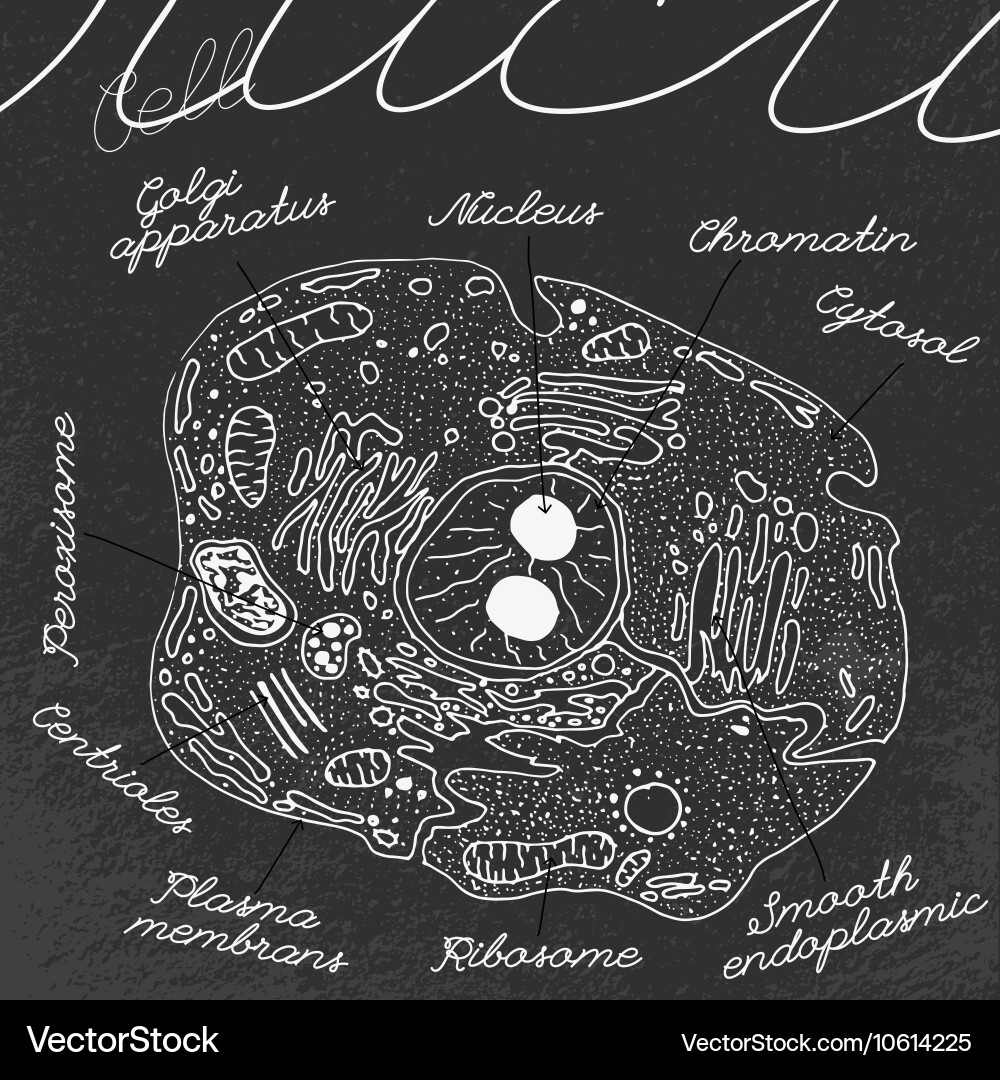 Cell
Golgi
apparatus
Nucleus
Chromatin
Cytosol
Peroxisome
Centrioles
Plasma
membrans
Ribosome
Smooth
endoplasmic
VectorStock
VectorStock.com/10614225